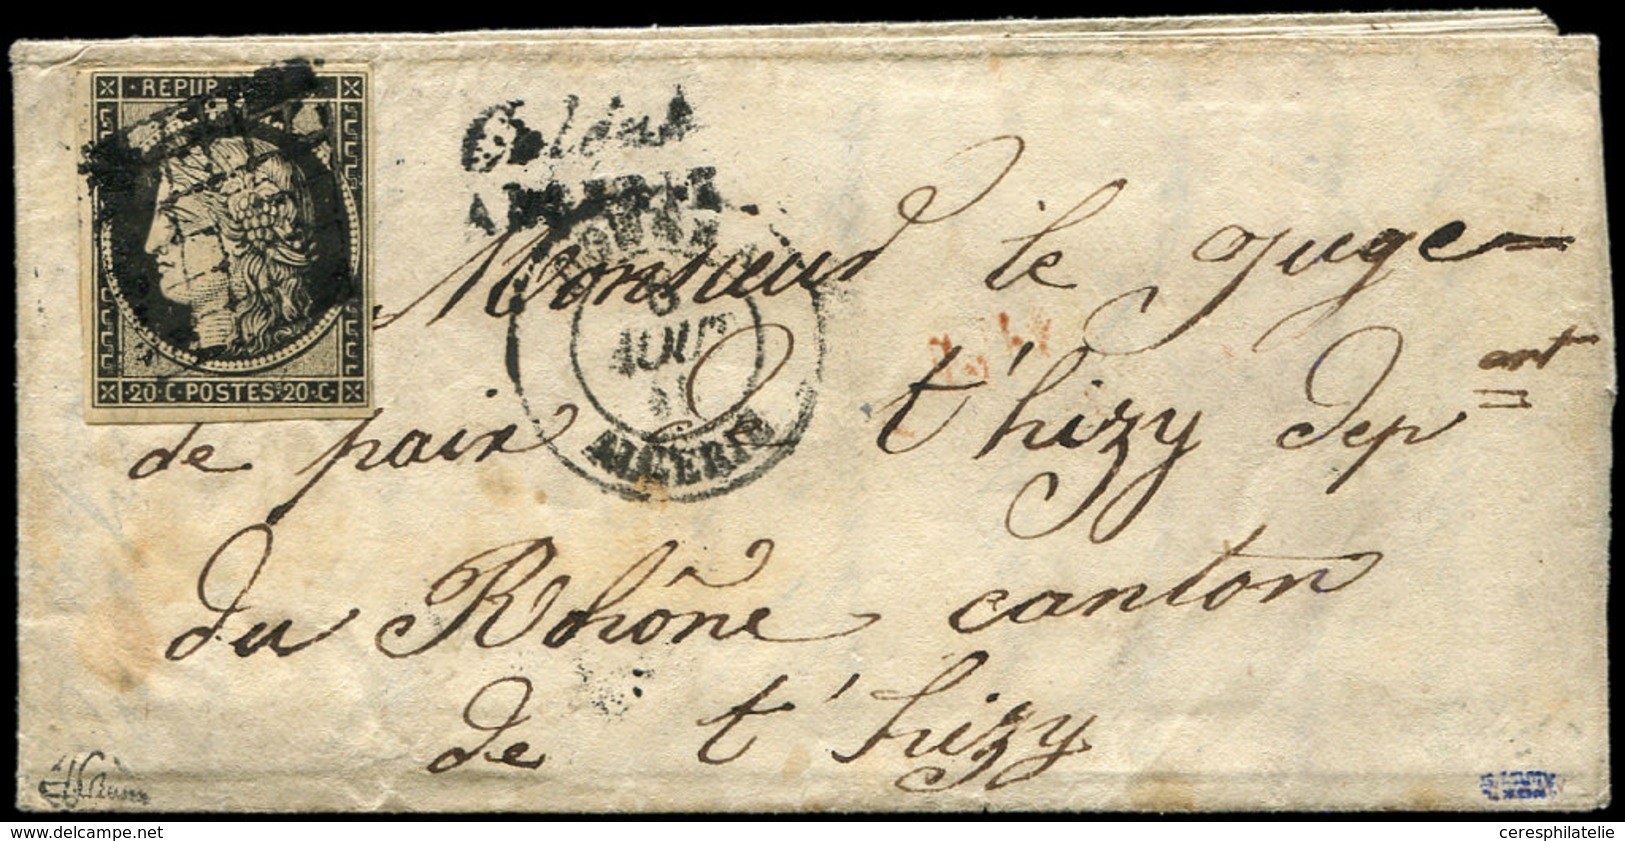 REPUB
20 · C · POSTES · 20 · C ·
ALGERIE
AOUT
ALGERIE
Monsieur le Juge
de paix de t'hizy depart
du Rhône canton
de t'hizy
www.delcampe.net
ceresphilatelie